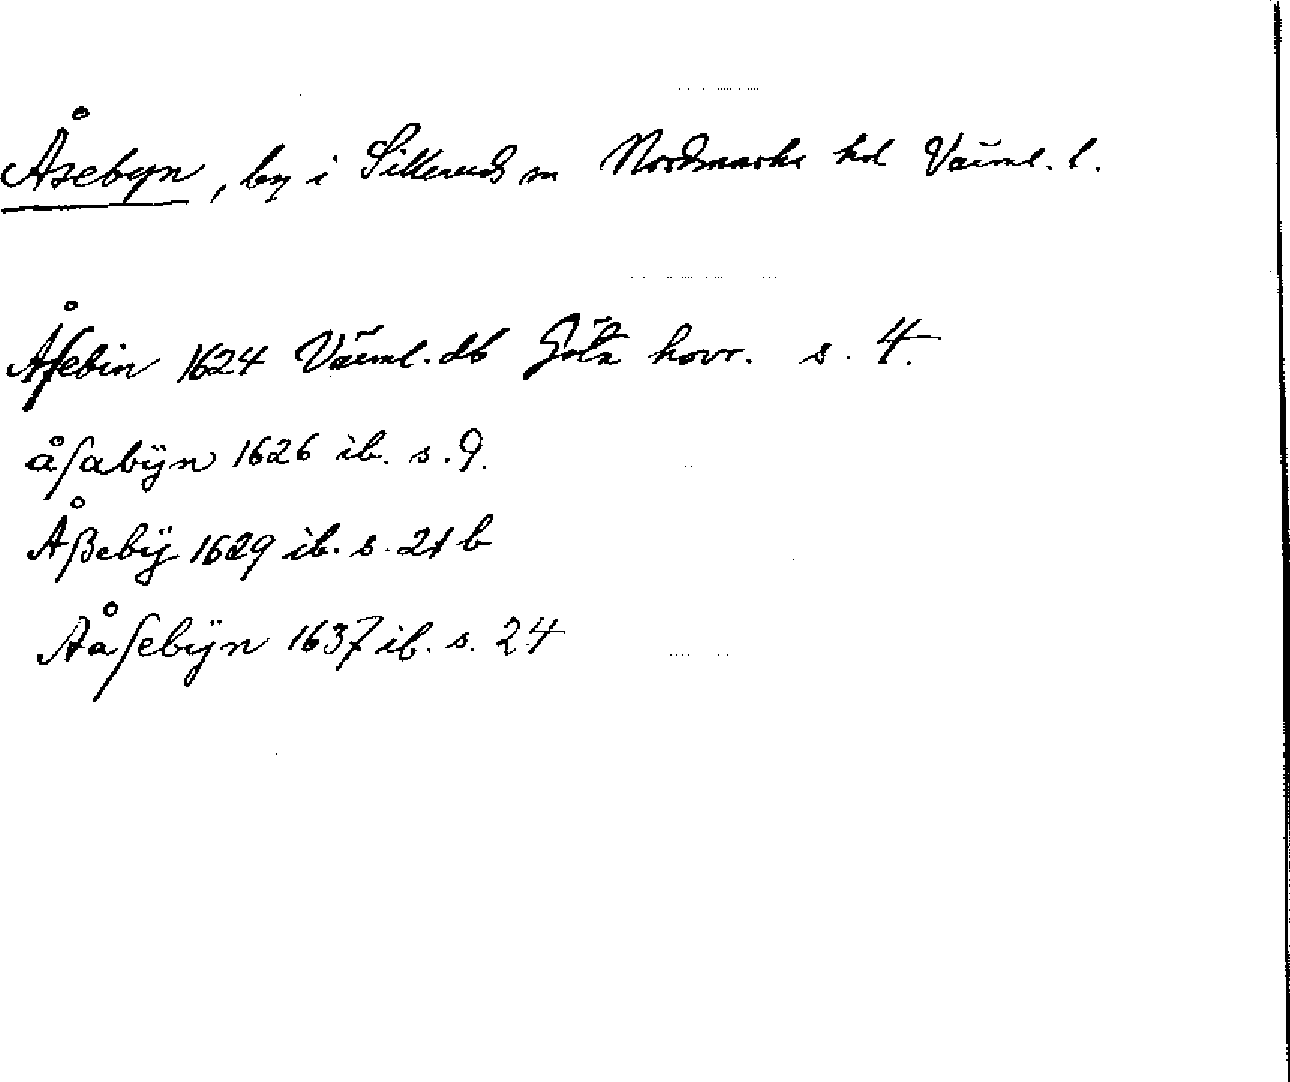 Åsebyn, by i Sillerud sn Nordmarks hd Värml. l.
Åſebin 1624 Värml. db Göta hovr. s. 4.
åſabÿn 1626 ib. s. 9.
Åßebÿ 1629 ib. s. 21 b
Aåſebÿn 1637 ib. s. 24